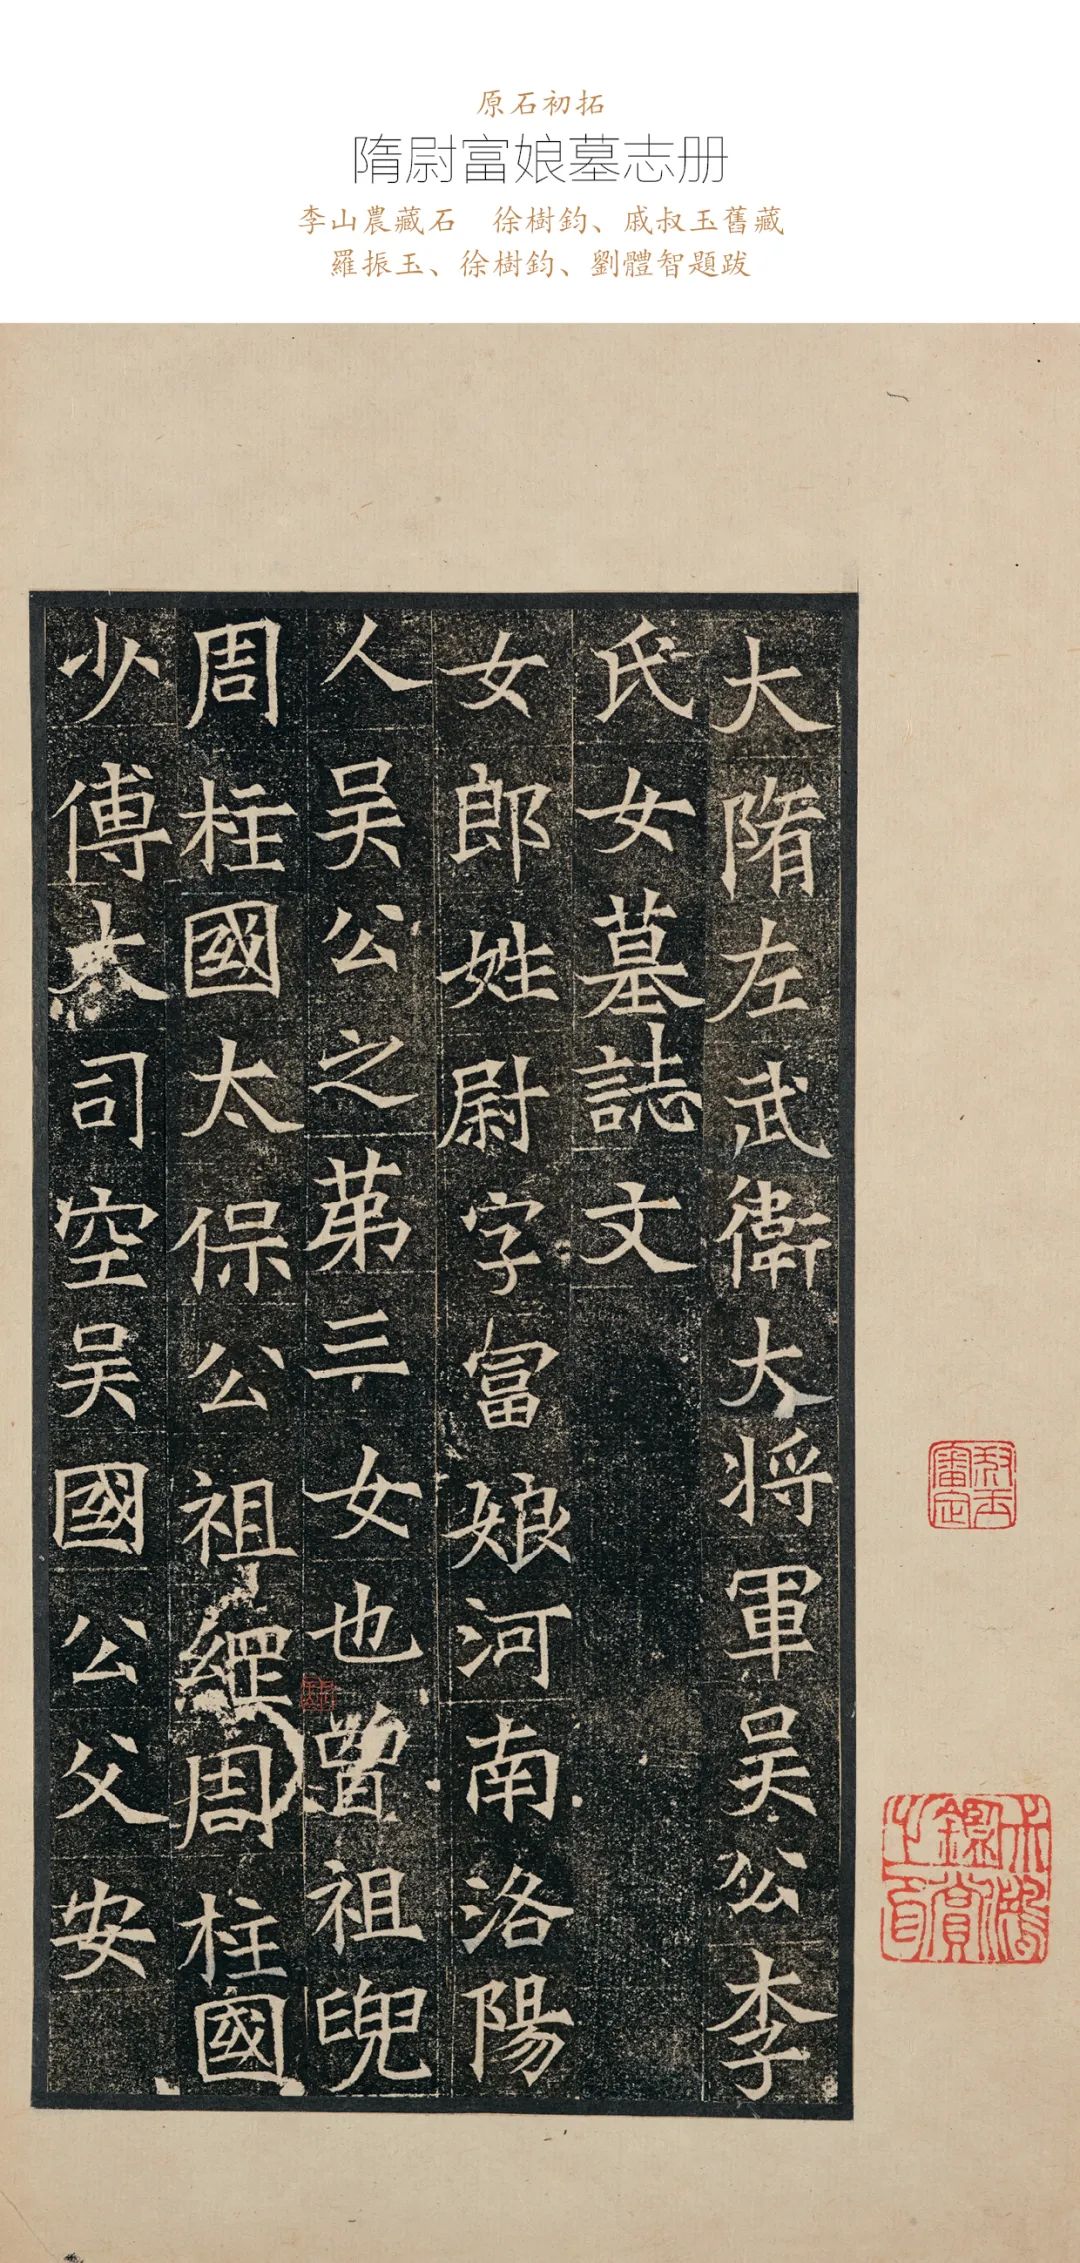 原石初拓
隋尉富娘墓志册
李山農藏石　徐樹鈞、戚叔玉舊藏
羅振玉、徐樹鈞、劉體智題跋
大隋左武衞大将軍吴公李
氏女墓誌文
女郎姓尉字富娘河南洛陽
人吴公之苐三女也曾祖兜
周柱國太保公祖綱周柱國
少傅大司空吴國公父安